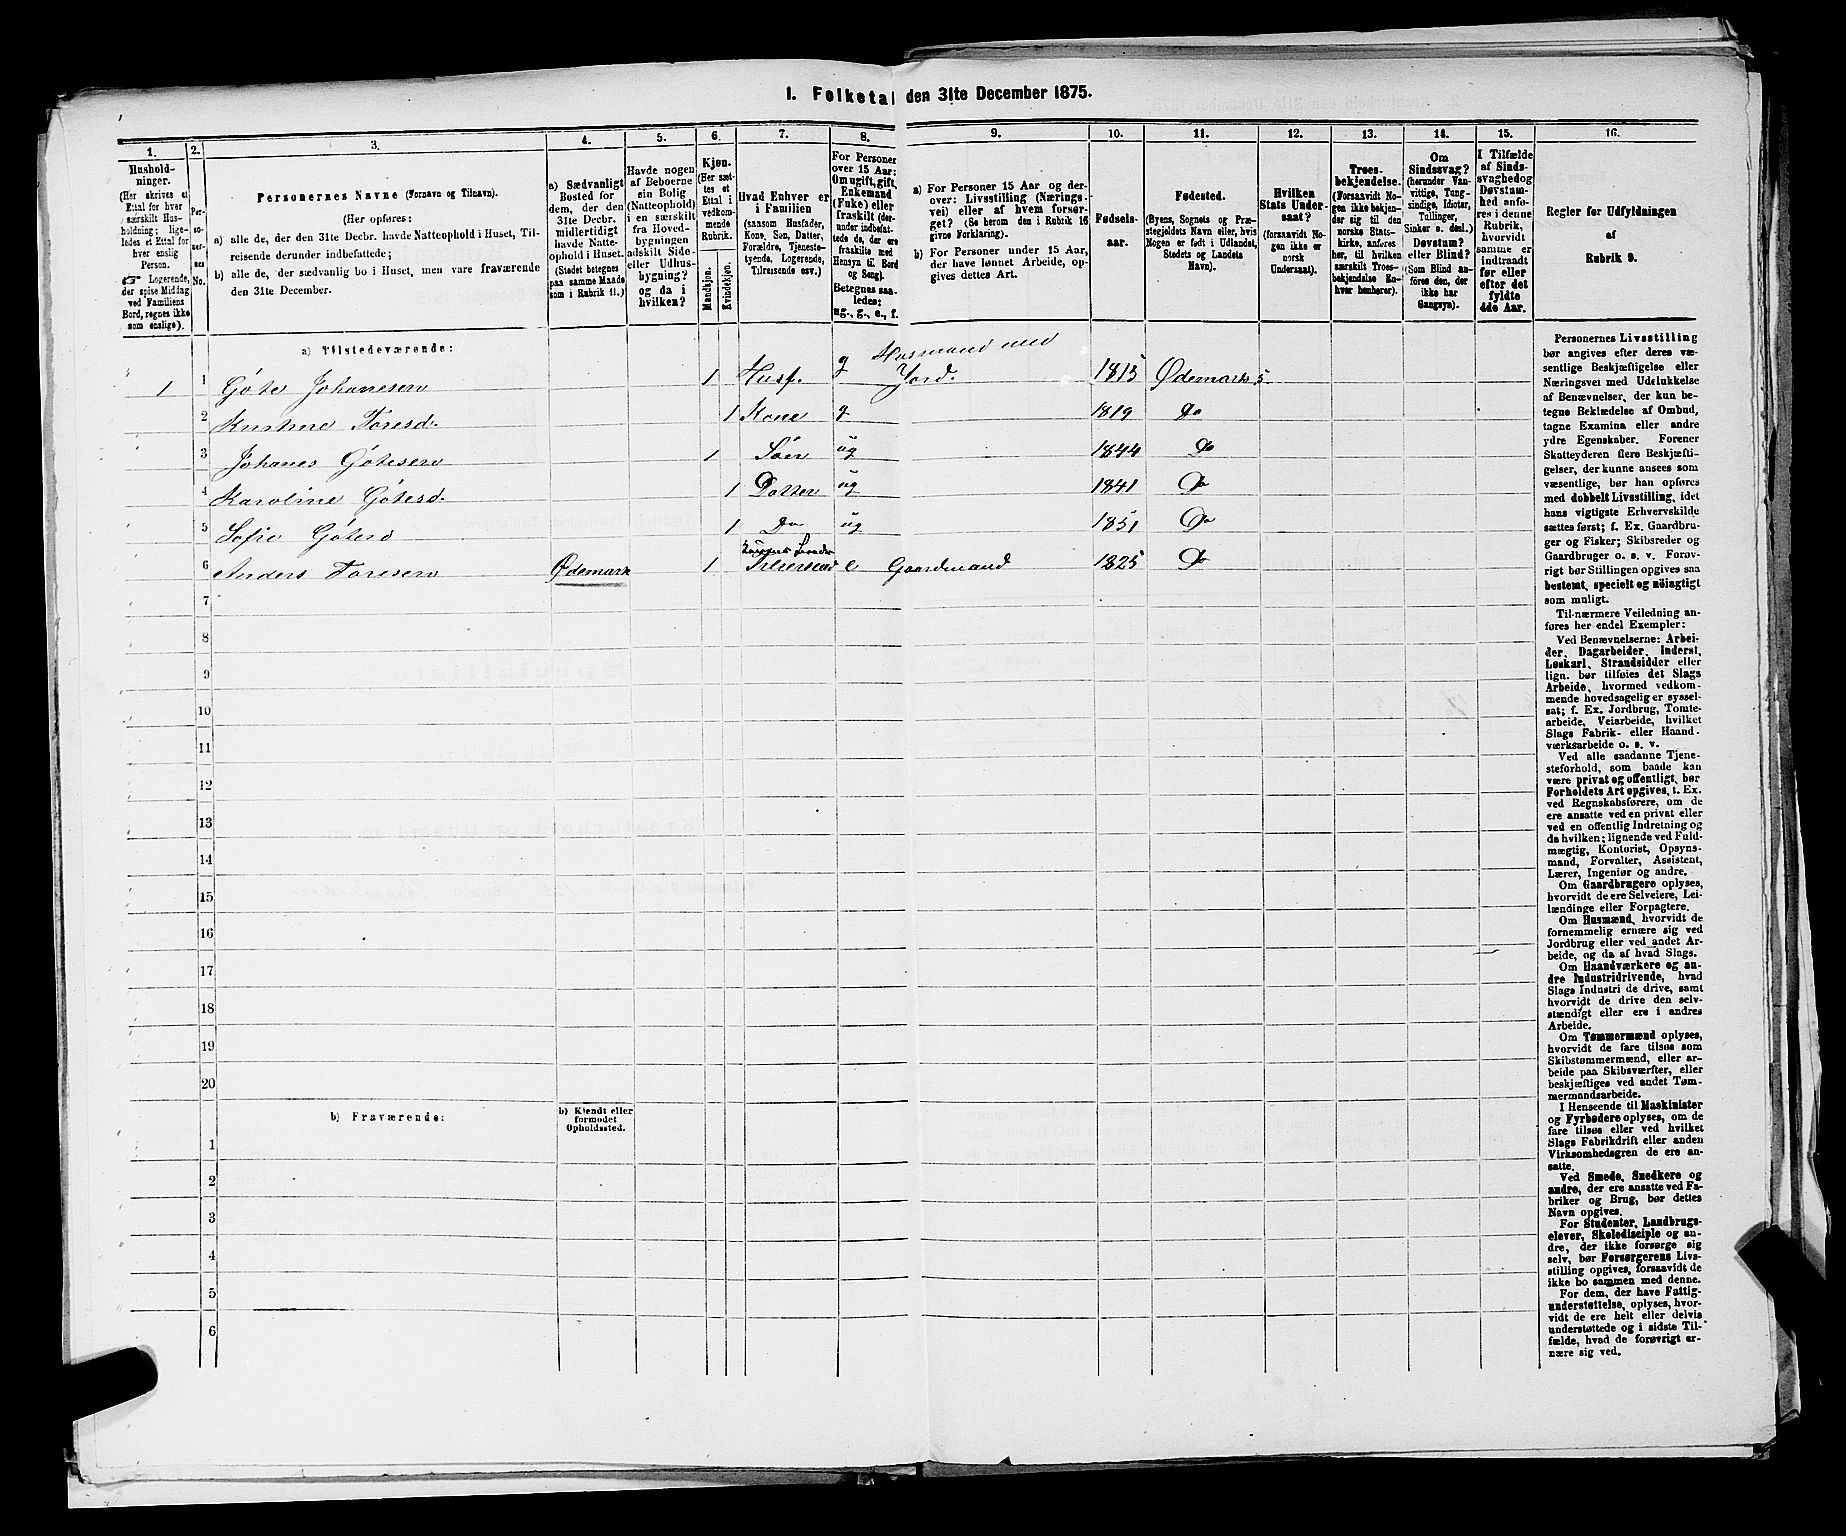 1. Folketal den 31te December 1875.
1.
2.
3.
4.
5.
6.
7.
8.
9.
10.
11.
12.
13.
14.
15.
16.
Husholdninger.
(Her skrives et
Ettal for hver
særskilt Husholdning;
ligeledes et Ettal for
hver enslig
Person.
Logerende,
der spise Middag
ved Familiens
Bord, regnes ikke
som enslige).
Personernes
No.
Personernes Navne (Fornavn og Tilnavn).
(Her opføres:
a) alle de, der den 31te Decbr. havde Natteophold i Huset, Tilreisende
derunder indbefattede;
b) alle de, der sædvanlig bo i Huset, men vare fraværende
den 31te December.
a) Sædvanligt
Bosted for
dem, der den
31te Decbr.
midlertidigt
havde Natteophold
i Huset.
(Stedet betegnes
paa samme Maade
som i Rubrik 11.)
Havde nogen
af Beboerne
sin Bolig
(Natteophold)
i en særskilt
fra Hovedbygningen
adskilt Side-
eller Udhusbygning?
og da i
hvilken?
Kjøn.
(Her sættes
et
Ettal i
vedkommende
Rubrik.
Mandkjøn.
Kvindekjøn.
Hvad Enhver er
i Familien
(saasom Husfader,
Kone, Søn, Datter,
Forældre, Tjenestetyende,
Logerende,
Tilreisende osv.)
For Personer
over 15 Aar:
Om ugift, gift,
Enkemand
(Enke) eller
fraskilt (derunder
indbefattede
de, der ere
fraskilte med
Hensyn til Bord
og Seng).
Betegnes saaledes:
ug., g., e., f.
a) For Personer 15 Aar og derover:
Livsstilling (Næringsvei)
eller af hvem forsørget?
(Se herom den i Rubrik 16
givne Forklaring).
b) For Personer under 15 Aar,
der have lønnet Arbeide, opgives
dettes Art.
Fødselsaar.
Fødested.
(Byens, Sognets og Præstegjeldets
Navn eller, hvis
Nogen er født i Udlandet,
Stedets og Landets
Navn).
Hvilken
Stats Undersaat?
(forsaavidt Nogen
ikke er
norsk
Undersaat).
Troesbekjendelse.
(Forsaavidt Nogen
ikke bekjender
sig til den
norske Statskirke,
anføres
her, til hvilken
særskilt Troesbekjendelse
Enhver
henhører).
Om
Sindssvag?
(herunder Vanvittige,
Tungsindige,
Idioter,
Tullinger,
Sinker o. desl.)
Døvstum?
eller Blind?
(Som Blind anføres
den, der
ikke har
Gangsyn).
I Tilfælde
af Sindssvaghed
og
Døvstumhed
anføres
i denne
Rubrik,
hvorvidt
samme er
indtraadt
før eller
efter det
fyldte
4de Aar.
Regler for Udfyldningen
af
Rubrik 9.
a) Tilstedeværende:
Husmand med
1 1 Göte Johanesen 1 Husf. g Jord. 1815 Ødemark s
2 Kristine Toresd. 1 Kone g 1819 Do
3 Johanes Götesen 1 Søn ug 1844 Do
4 Karoline Götesd. 1 Datter ug 1841 Do
5 Sofie Götesd 1 Do ug 1851 Do
6 Anders Toresen Ødemark 1 e Gaardmand 1825 Do
7
8
9
10
11
12
13
14
15
16
17
18
19
20
b) Fraværende:
b) Kjendt eller
formodet
Opholdssted.
1
2
3
4
5
6
Personernes Livsstilling
bør angives efter deres væsentlige
Beskjæftigelse eller
Næringsvei med Udelukkelse
af Benævnelser, der kun betegne
Beklædelse af Ombud,
tagne Examina eller andre
ydre Egenskaber. Forener
Skatteyderen flere Beskjæftigelser,
der kunne ansees som
væsentlige, bør han opføres
med dobbelt Livsstilling, idet
hans vigtigste Erhvervskilde
sættes først; f. Ex. Gaardbruger
og Fisker; Skibsreder og
Gaardbruger o. s. v. Forøvrigt
bør Stillingen opgives saa
bestemt, specielt og nöiagtigt
som muligt.
Til nærmere Veiledning anføres
her endel Exempler:
Ved Benævnelserne: Arbeider,
Dagarbeider, Inderst,
Løskarl, Strandsidder eller
lign. bør tilføies det Slags
Arbeide, hvormed vedkommende
hovedsagelig er sysselsat;
f. Ex. Jordbrug, Tomtearbeide,
Veiarbeide, hvilket
Slags Fabrik- eller Haandværksarbeide
o. s. v.
Ved alle saadanne Tjenesteforhold,
som baade kan
være privat og offentligt, bør
Forholdets Art opgives, t. Ex.
ved Regnskabsførere, om de
ere ansatte ved en privat eller
ved en offentlig Indretning og
da hvilken; lignende ved Fuldmægtig,
Kontorist, Opsynsmand,
Forvalter, Assistent,
Lærer, Ingeniør og andre.
Om Gaardbrugere oplyses,
hvorvidt de ere Selveiere, Leilændinge
eller Forpagtere.
Om Husmænd, hvorvidt de
fornemmelig ernære sig ved
Jordbrug eller ved andet Arbeide,
og da af hvad Slags.
Om Haandværkere og andre
Industridrivende, hvad
Slags Industri de drive, samt
hvorvidt de drive den selvstændigt
eller ere i andres
Arbeide.
Om Tømmermænd oplyses,
hvorvidt de fare tilsøs som
Skibstømmermænd, eller arbeide
paa Skibsværfter, eller
beskjæftiges ved andet Tømmermandsarbeide.
I Henseende til Maskinister
og Fyrbødere oplyses, om de
fare tilsøs eller ved hvilket
Slags Fabrikdrift eller anden
Virksomhedsgren de ere ansatte.
Ved Smede, Snedkere og
andre, der ere ansatte ved Fabriker
og Brug, bør dettes
Navn opgives.
For Studenter, Landbrugselever,
Skoledisciple og andre,
der ikke forsørge sig
selv, bør Forsørgerens Livsstilling
opgives, forsaavidt de
ikke bo sammen med denne.
For dem, der have Fattigunderstøttelse,
oplyses, hvorvidt
de ere helt eller delvis
understøttede og i sidste Tilfælde,
hvad de forøvrigt ernære
sig ved.